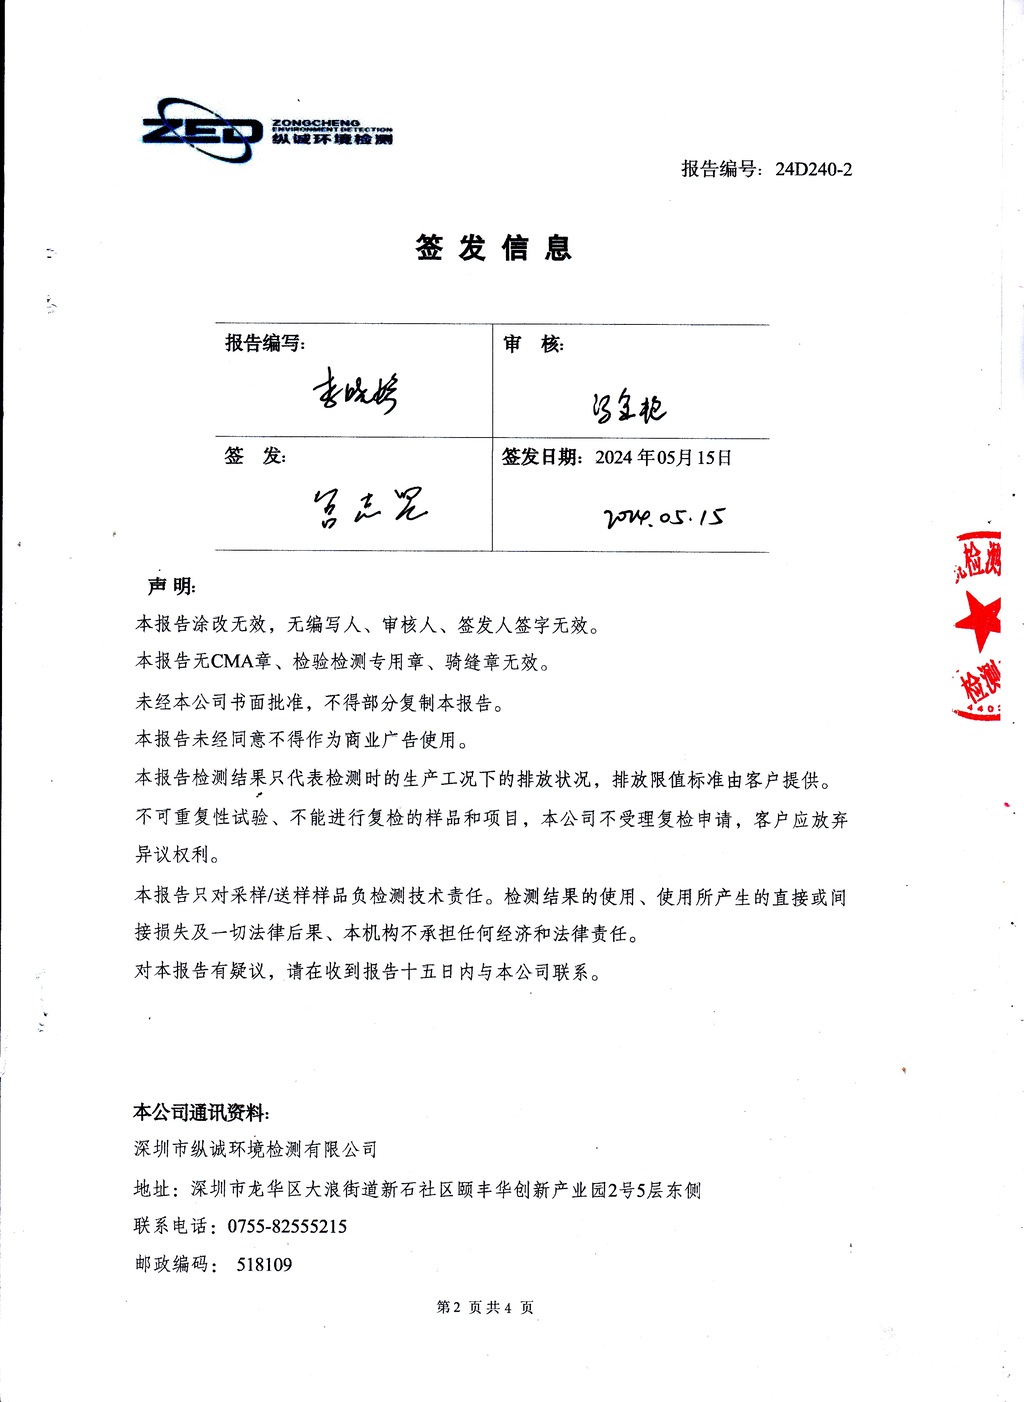 ZED ZONGCHENG
ENVIRONMENT DETECTION
纵诚环境检测
报告编号：24D240-2
签发信息
报告编写：
审 核：
签 发：
签发日期：2024年05月15日
2024.05.15
声明：
本报告涂改无效，无编写人、审核人、签发人签字无效。
本报告无CMA章、检验检测专用章、骑缝章无效。
未经本公司书面批准，不得部分复制本报告。
本报告未经同意不得作为商业广告使用。
本报告检测结果只代表检测时的生产工况下的排放状况，排放限值标准由客户提供。
不可重复性试验、不能进行复检的样品和项目，本公司不受理复检申请，客户应放弃
异议权利。
本报告只对采样/送样样品负检测技术责任。检测结果的使用、使用所产生的直接或间
接损失及一切法律后果、本机构不承担任何经济和法律责任。
对本报告有疑议，请在收到报告十五日内与本公司联系。
检测
检测
440
本公司通讯资料：
深圳市纵诚环境检测有限公司
地址：深圳市龙华区大浪街道新石社区颐丰华创新产业园2号5层东侧
联系电话：0755-82555215
邮政编码： 518109
第2 页共4 页